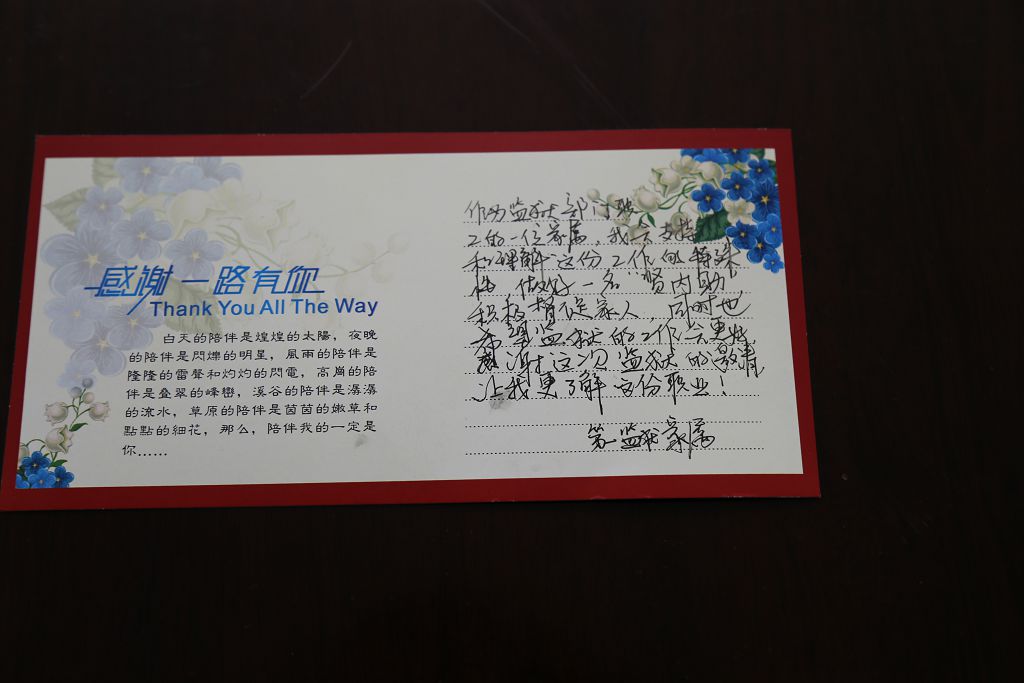 感謝一路有你
Thank You All The Way
白天的陪伴是煌煌的太陽，夜晚
的陪伴是閃爍的明星，風雨的陪伴是
隆隆的雷聲和灼灼的閃電，高崗的陪
伴是叠翠的峰巒，溪谷的陪伴是潺潺
的流水，草原的陪伴是茵茵的嫩草和
點點的細花，那么，陪伴我的一定是
你……
作为监狱部门职
工的一位家属，我会支持
和理解这份工作的特殊
性，做好一名贤内助，
积极督促家人，同时也
希望监狱的工作会更好，
感谢这次监狱的邀请
让我更了解这份职业！
第一监狱家属